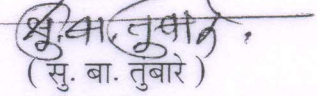 सु. बा. तुंबारे.
( सु. बा. तुंबारे )